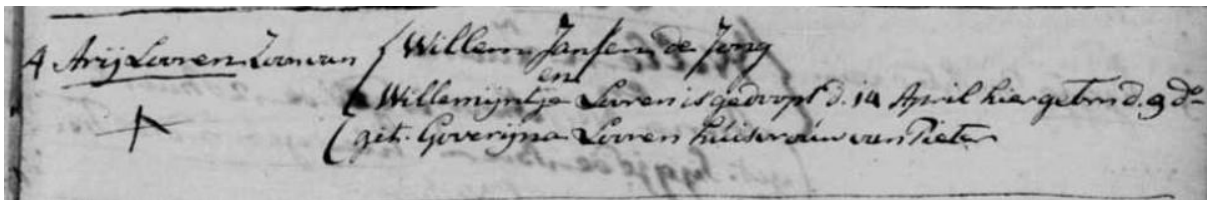 4 Arij Looren Zoon van Willem Jansen de Jong
en
Willemijntje Looren is gedoopt d. 14 April hier gebrn d. 9 do
get. Goverijna Looren huisvrouw van Pieter